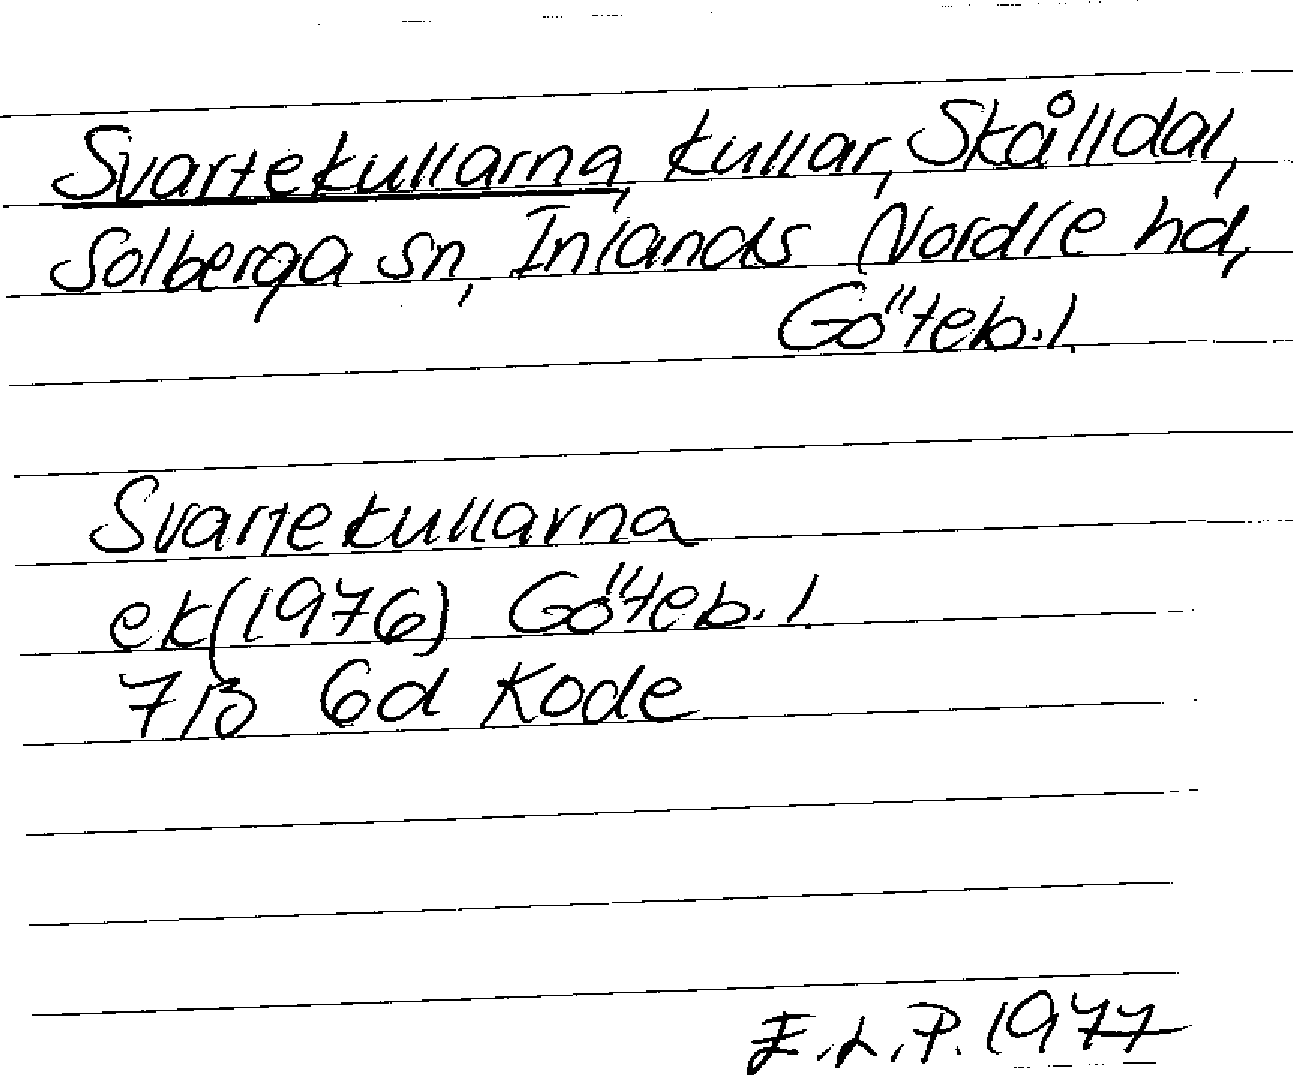 Svartekullarna, kullar, Skålldal,
Solberga sn, Inlands Nordre hd,
Göteb. l.
Svartekullarna
ek (1976) Göteb. l.
7B 6d Kode
E.L.P. 1977